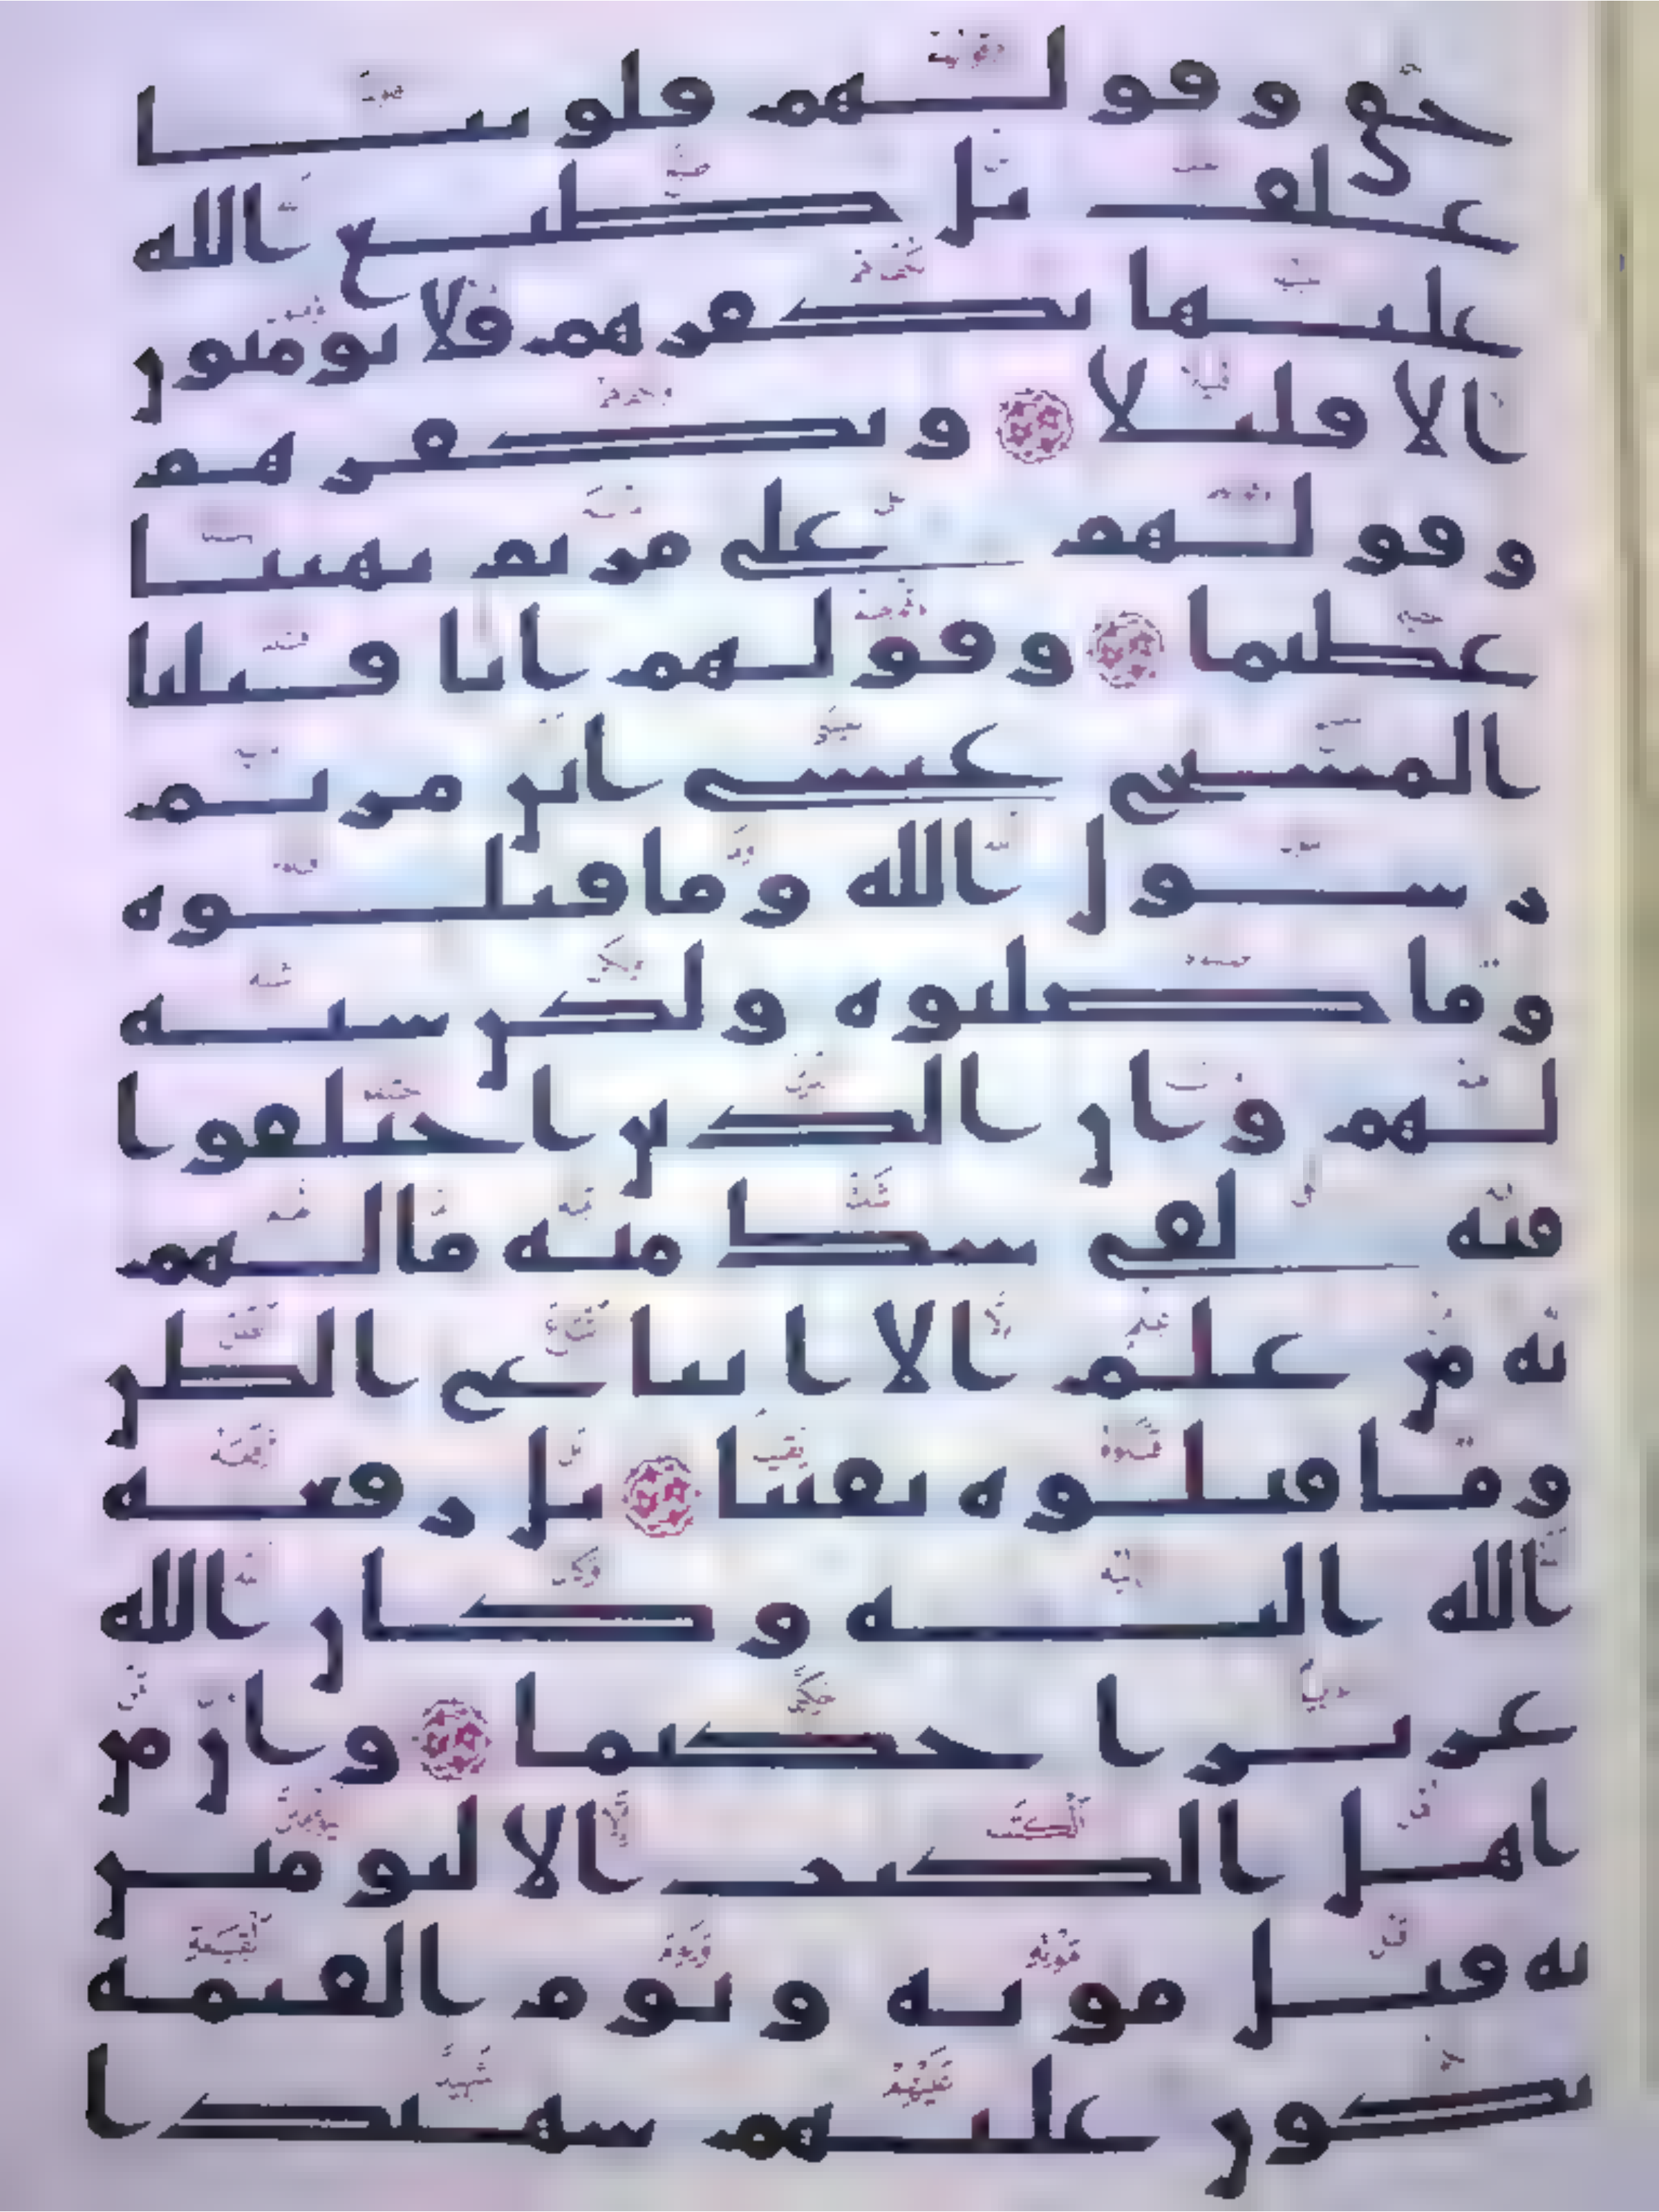 حق وقولهم قلوبنا
غلف بل طبع الله
عليها بكفرهم فلا يومنون
الا قليلا وبكفرهم
وقولهم على مريم بهتنا
عظيما وقولهم انا قتلنا
المسيح عيسى ابن مريم
رسول الله وما قتلوه
وما صلبوه ولكن شبه
لهم وان الذين اختلفوا
فيه لفي شك منه ما لهم
به من علم الا اتباع الظن
وما قتلوه يقينا بل رفعه
الله اليه وكان الله
عزيزا حكيما وان من
اهل الكتب الا ليومنن
به قبل موته ويوم القيمه
يكون عليهم شهيدا